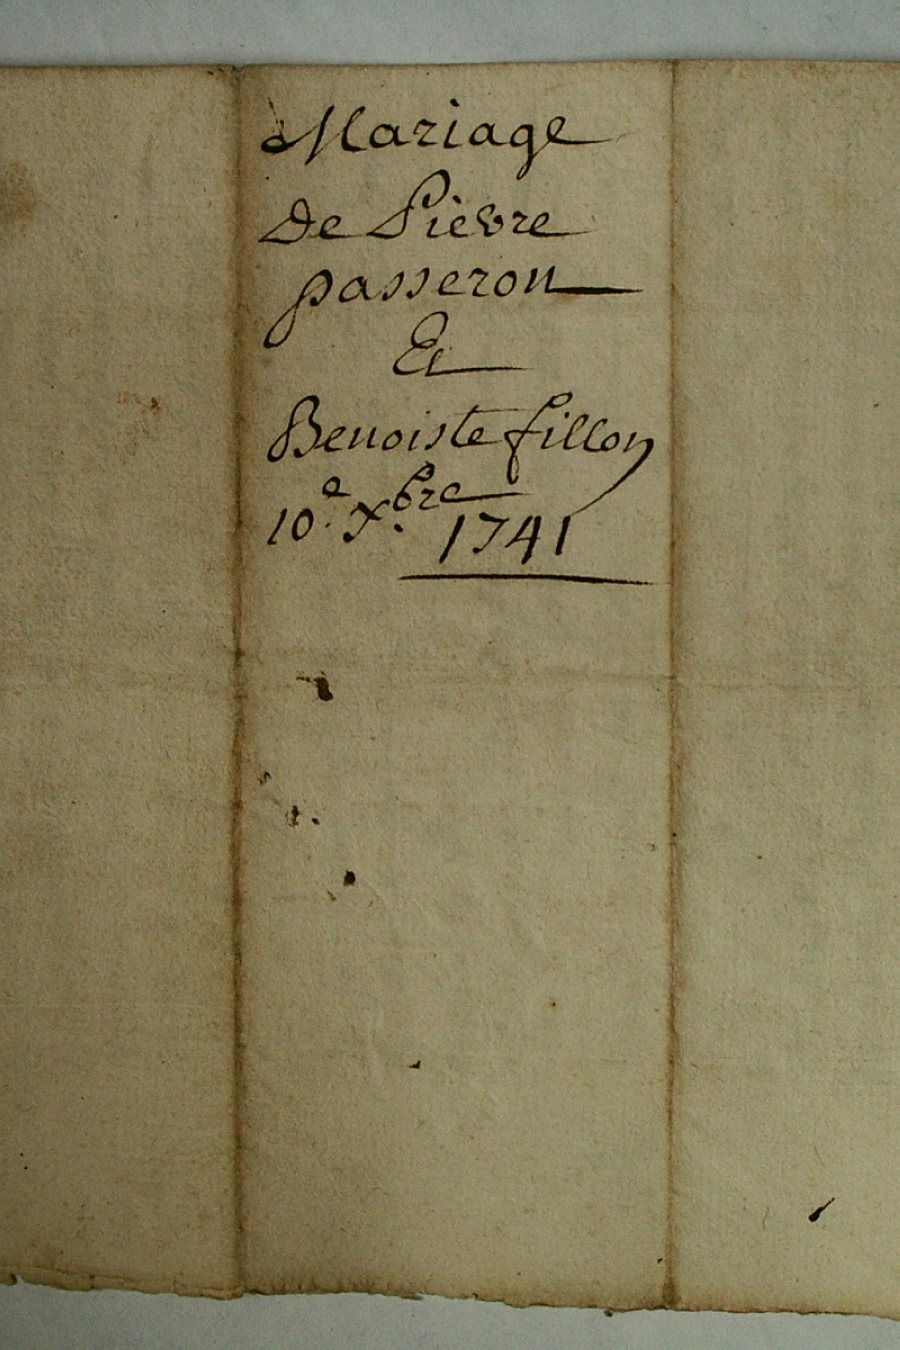 Mariage
De Pierre
passeron
Et
Benoiste fillon
10e. Xbre
1741